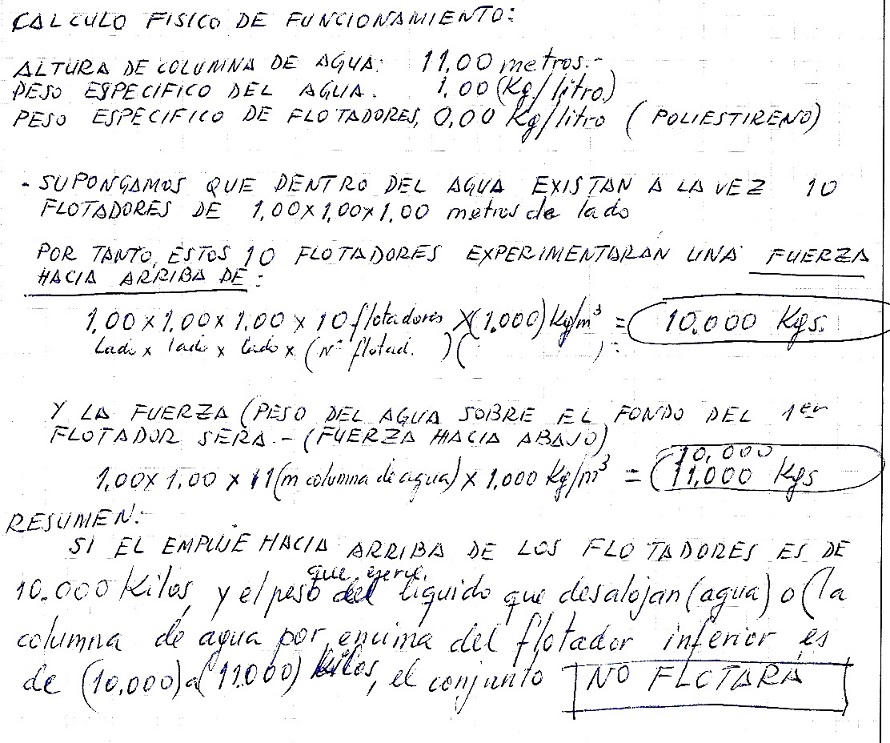 CALCULO FISICO DE FUNCIONAMIENTO:
ALTURA DE COLUMNA DE AGUA: 11,00 metros.-
PESO ESPECIFICO DEL AGUA. 1,00 (Kg/litro)
PESO ESPECIFICO DE FLOTADORES, 0,00 Kg/litro (POLIESTIRENO)
- SUPONGAMOS QUE DENTRO DEL AGUA EXISTAN A LA VEZ 10
FLOTADORES DE 1,00x1,00x1,00 metros de lado
POR TANTO, ESTOS 10 FLOTADORES EXPERIMENTARAN UNA FUERZA
HACIA ARRIBA DE:
1,00 x 1,00 x 1,00 x 10 flotadores x (1.000) Kg/m³ = 10.000 Kgs.
Lado x lado x lado x (Nº flotad. ) ( ) :
Y LA FUERZA (PESO DEL AGUA SOBRE EL FONDO DEL 1er
FLOTADOR SERA.- (FUERZA HACIA ABAJO)
10,000
1,00 x 1,00 x 11 (m columna de agua) x 1,000 Kg/m³ = (11,000 Kgs
RESUMEN:-
SI EL EMPUJE HACIA ARRIBA DE LOS FLOTADORES ES DE
que ejerce
10.000 Kilos, y el peso del liquido que desalojan (agua) o (la
columna de agua por encima del flotador inferior es
de (10,000) a (11000) Kilos, el conjunto NO FLOTARA